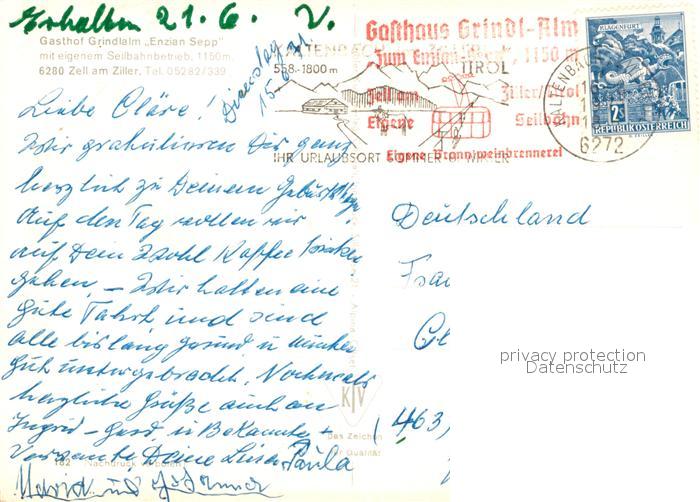 Erhalten 21.6. V.
Gasthof Grindlalm „Enzian Sepp"
mit eigenem Seilbahnbetrieb, 1150m,
6280 Zell am Ziller, Tel. 05282/339
Dienstag
15.6.71.
Liebe Cläre!
Wir gratulieren Dir ganz
herzlich zu Deinem Geburtstage
Auf den Tag wollen wir
auf Dein Wohl Kaffee trinken
gehen. – Wir hatten eine
gute Fahrt und sind
alle bislang gesund u. munter
gut untergebracht. Nochmals
herzliche Grüße auch an
Ingrid – Gerd u. Bekannte +
Verwandte Deine
Paula
und
182 Nachdruck verboten
KV
Das Zeichen
für Qualität
Gasthaus Grindl-Alm
„Zum Enzian 1150 m
Zell am Ziller/Tirol
Eigene Seilbahn
Eigene Branntweinbrennerei
558-1800 m
TIROL
IHR URLAUBSORT SOMMER U. WINTER
6272
KLAGENFURT
2S
REPUBLIK ÖSTERREICH
Deutschland
463,
privacy protection
Datenschutz